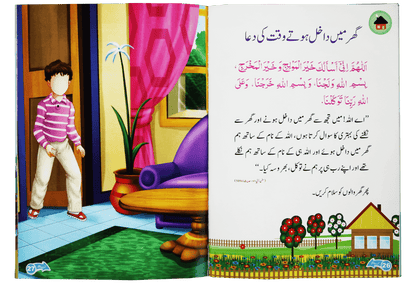 گھر میں داخل ہوتے وقت کی دعا
اَللّٰهُمَّ اِنِّیْ اَسْاَلُكَ خَیْرَ الْمَوْلِجِ وَ خَیْرَ الْمَخْرَجِ،
بِسْمِ اللّٰهِ وَلَجْنَا، وَ بِسْمِ اللّٰهِ خَرَجْنَا، وَعَلَی
اللّٰهِ رَبِّنَا تَوَكَّلْنَا،
”اے اللہ! میں تجھ سے گھر میں داخل ہونے اور گھر سے
نکلنے کی بہتری کا سوال کرتا ہوں، اللہ کے نام کے ساتھ ہم
گھر میں داخل ہوئے اور اللہ ہی کے نام کے ساتھ ہم نکلے
تھے اور اپنے رب ہی پر ہم نے توکل، بھروسہ کیا۔“
پھر گھر والوں کو سلام کریں۔
27
26